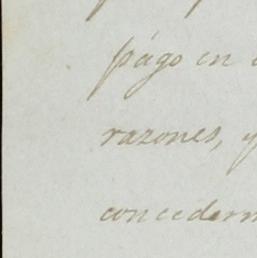 págo en
razones, y
concederm